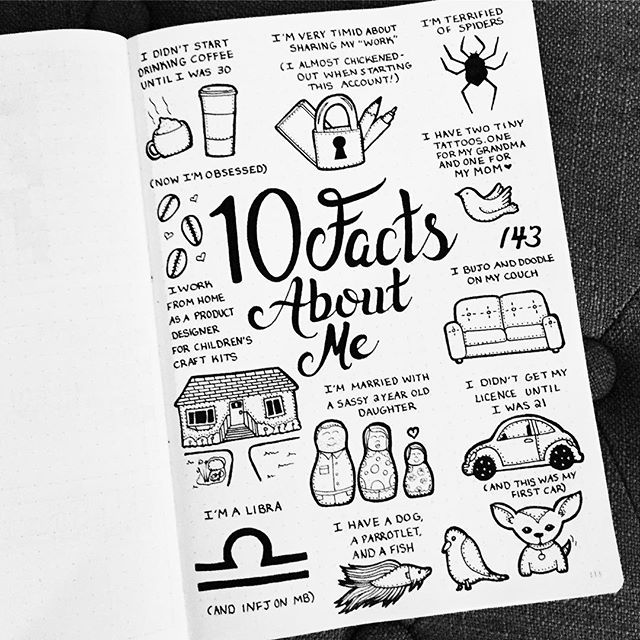 I DIDN'T START
DRINKING COFFEE
UNTIL I WAS 30
(NOW I'M OBSESSED)
I'M VERY TIMID ABOUT
SHARING MY "WORK"
(I ALMOST CHICKENED-
OUT WHEN STARTING
THIS ACCOUNT!)
I'M TERRIFIED
OF SPIDERS
I HAVE TWO TINY
TATTOOS. ONE
FOR MY GRANDMA
AND ONE FOR
MY MOM♥
143
10 Facts
About
Me
I WORK
FROM HOME
AS A PRODUCT
DESIGNER
FOR CHILDREN'S
CRAFT KITS
I BUJO AND DOODLE
ON MY COUCH
I'M MARRIED WITH
A SASSY 2 YEAR OLD
DAUGHTER
I DIDN'T GET MY
LICENCE UNTIL
I WAS 21
(AND THIS WAS MY
FIRST CAR)
I'M A LIBRA
(AND INFJ ON MB)
I HAVE A DOG,
A PARROTLET,
AND A FISH